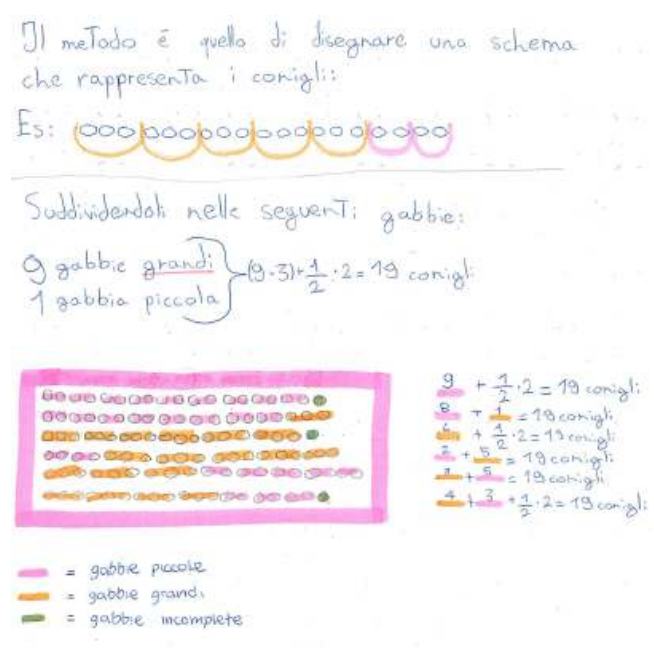 Il metodo è quello di disegnare uno schema
che rappresenta i conigli:
Es:
Suddividendoli nelle seguenti gabbie:
9 gabbie grandi
1 gabbia piccola
(9·3)+1/2·2=19 conigli
9 + 1/2·2=19 conigli
8 + 1 =19 conigli
6 + 1/2·2=19 conigli
2 + 5 = 19 conigli
+ 5 = 19 conigli
4 + 3 + 1/2·2=19 conigli
= gabbie piccole
= gabbie grandi
= gabbie incomplete